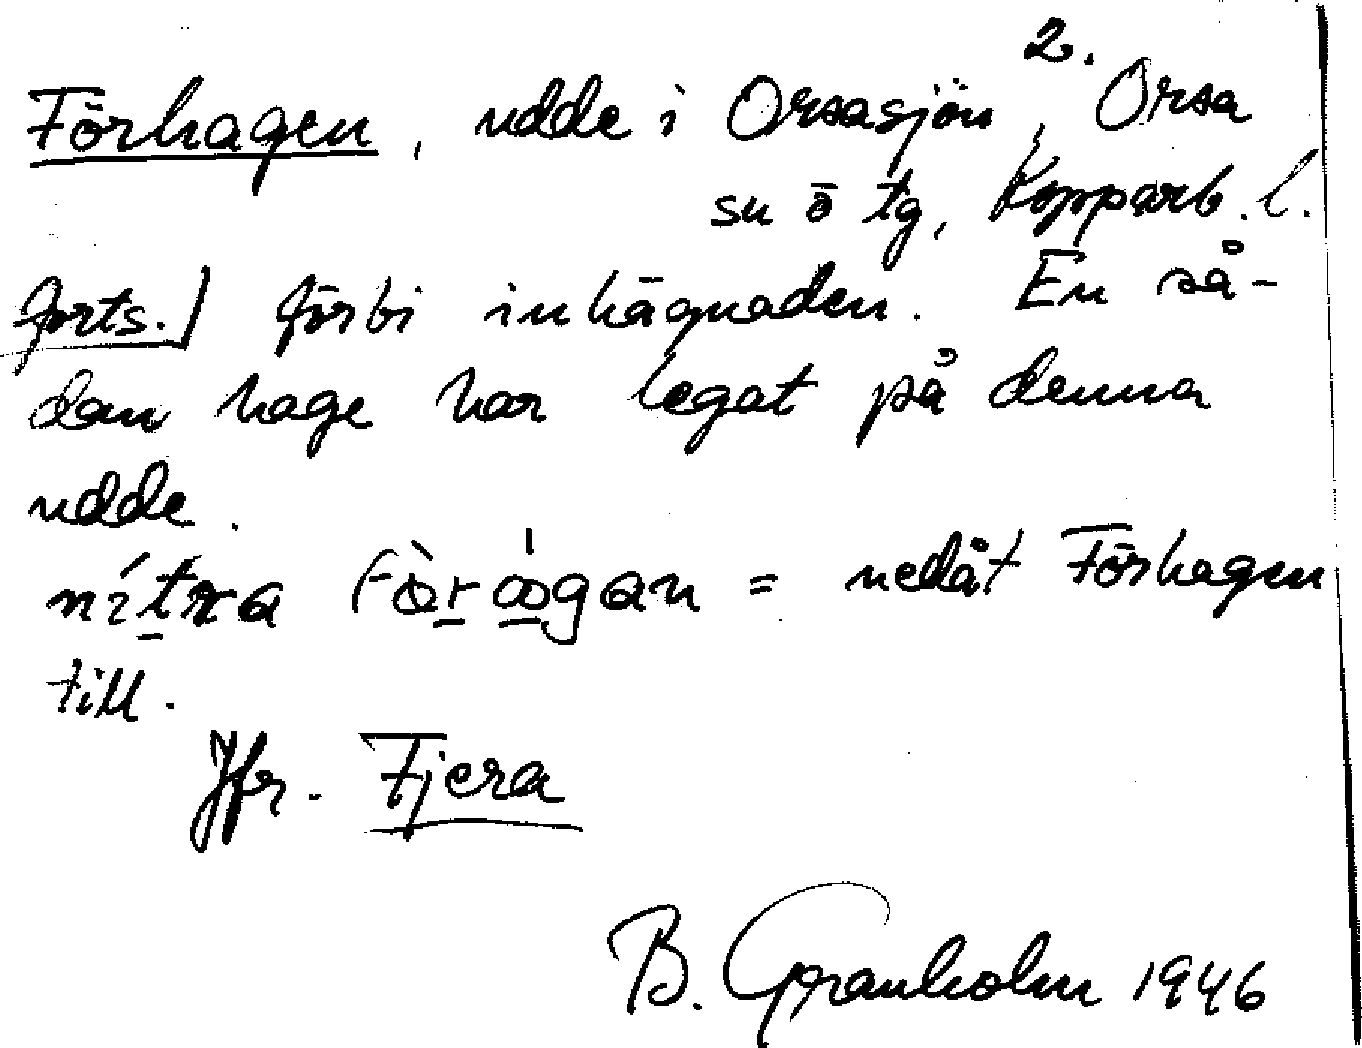 2.
Förhagen, udde i Orsasjön, Orsa
su ö tg, Kopparb. l.
forts.) förbi inhägnaden. En så-
dan hage har legat på denna
udde.
nedåt Förhagen
till.
Jfr. Fjera
B. Granholm 1946